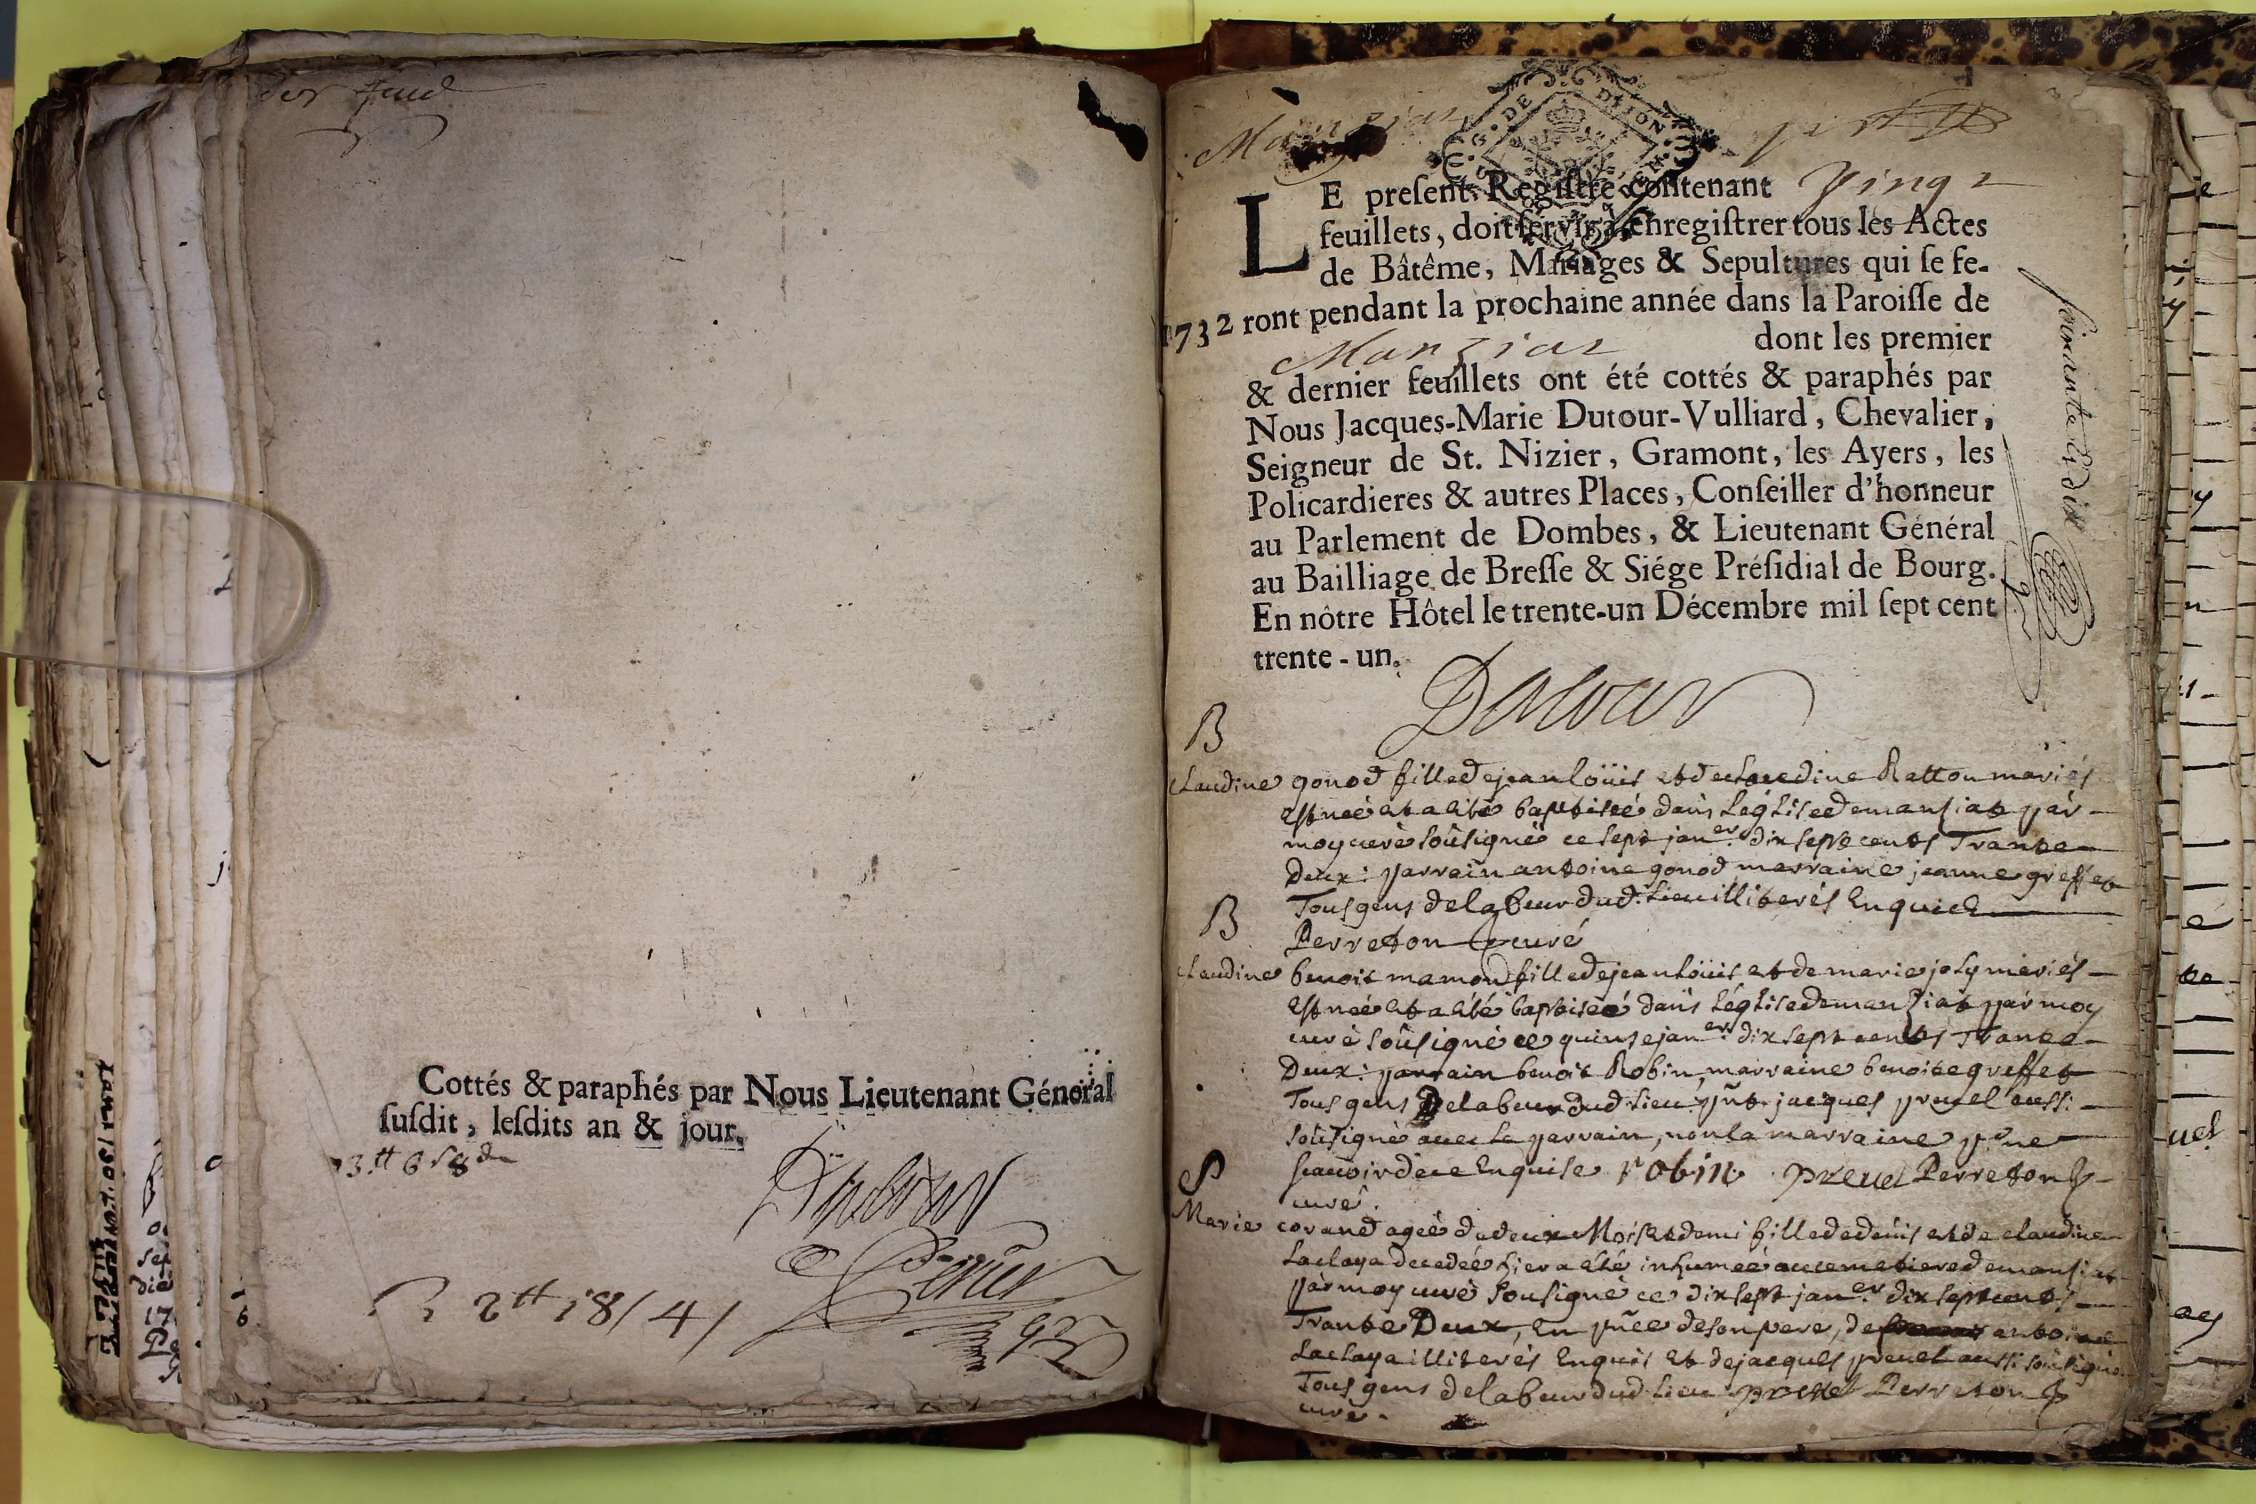 Cottés & paraphés par Nous Lieutenant Géneral
ſuſdit, leſdits an & jour.
3 tt 6 s 8 d
2 tt 18 / 4 /
Manziat
G. DE DIJON
LE preſent Regiſtre contenant Vingt
feuillets, doit ſervir à enregiſtrer tous les Actes
de Bâtême, Mariages & Sepultures qui ſe fe-
1732 ront pendant la prochaine année dans la Paroiſſe de
Manziat dont les premier
& dernier feuillets ont été cottés & paraphés par
Nous Jacques-Marie Dutour-Vulliard, Chevalier,
Seigneur de St. Nizier, Gramont, les Ayers, les
Policardieres & autres Places, Conſeiller d'honneur
au Parlement de Dombes, & Lieutenant Général
au Bailliage de Breſſe & Siége Préſidial de Bourg.
En nôtre Hôtel le trente-un Décembre mil ſept cent
trente-un.
soixante et dix
Dutour
B
Claudine gonod fille de jean loüis et de claudine Ratton mariés
est neé et a eté baptiseé dans l'église de mansiat par
moy curé soûsigné ce sept jan.er dix sept cents Trante
Deux : parrain antoine gonod marraine jeanne greffet
Tous gens de labeur dud. Lieu illiterés Enquis
B
Perreton curé
claudine benoit mamond fille de jean loüis et de marie joly mariés
est neé et a eté baptiseé dans l'église de manziat par moy
curé soûsigné ce quinse jan.er dix sept cents Trante
Deux : parrain benoit Robin, marraine benoite greffet
Tous gens De labeur dud. Lieu pnt. jacques pruel aussi
soûsigné avec le parrain, non la marraine p.r ne
scauoir de ce Enquise robin preuel Perreton
curé.
S
Marie corand ageé de deux Mois et demi fille de denis et de claudine
Laclaya decedeé hier a eté inhumeé au cemetiere de mansiat
par moy curé soûsigné ce dix sept jan.er dix sept cents
Trante Deux, En pnce de son pere, de antoine
Laclaya illiterés Enquis Et de jacques preuel aussi soûsigné
Tous gens de labeur dud. Lieu preuel Perreton
curé.